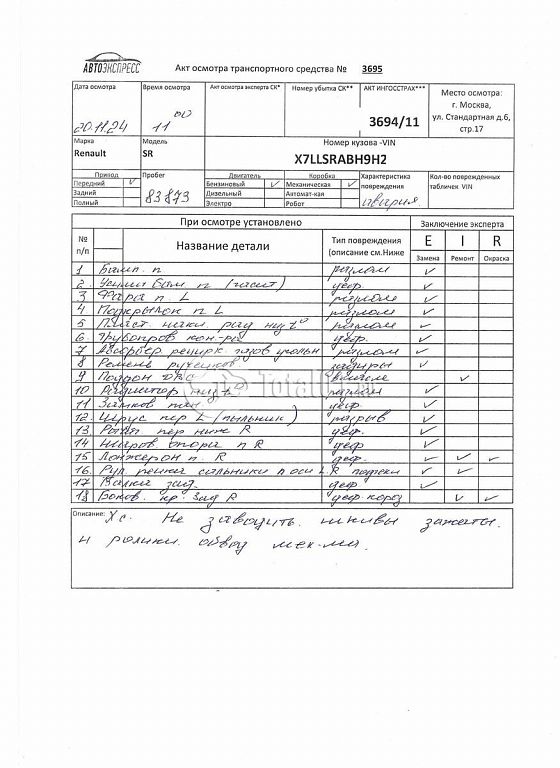 АВТОЭКСПРЕСС
Акт осмотра транспортного средства № 3695
Дата осмотра Время осмотра Акт осмотра эксперта СК* Номер убытка СК** АКТ ИНГОССТРАХ*** Место осмотра:
20.11.24 11 00 3694/11 г. Москва,
ул. Стандартная д.6,
стр.17
Марка Модель Номер кузова -VIN
Renault SR X7LLSRABH9H2
Привод Пробег Двигатель Коробка Характеристика повреждения Кол-во поврежденных табличек VIN
Передний ✓ 83873 Бензиновый ✓ Механическая ✓ авария
Задний Дизельный Автомат-кая
Полный Электро Робот
При осмотре установлено Заключение эксперта
№ п/п Название детали Тип повреждения (описание см.Ниже E I R
Замена Ремонт Окраска
1 Бамп. п разлом ✓
2 Усилит бам п деф. ✓
3 Фара п. L разлом ✓
4 Подкрылок п L разлом ✓
5 Пласт разлом ✓
6 Трубопров кон-ра деф. ✓
7 Абсорбер газов разлом ✓
8 Ремень ручейков задиры ✓
9 Поддон ДВС ✓
10 Радиатор разлом ✓
11 деф ✓
12 L (пыльник) разрыв ✓
13 Рычаг пер ниж R деф. ✓
14 Шаров опора п R деф ✓
15 Лонжерон п. R деф. ✓ ✓ ✓
16 Рул рейка сальники R ✓ ✓
17 Балка зад. деф ✓
18 Боков. зад R деф ✓ ✓
Описание: Не заводить. шкивы зажаты.
и ролики. обвод мех-ма.
TotalCar